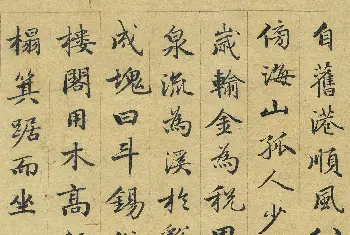 自舊港順風
傍海山孤人少
歲輸金為稅
泉流為溪於
成塊曰斗錫
楼閣用木高
榻箕踞而坐